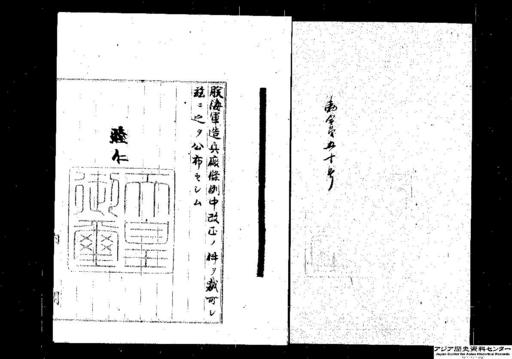 勅令第五十号
朕海軍造兵廠條例中改正ノ件ヲ裁可シ
玆ニ之ヲ公布セシム
睦仁
天皇御璽
アジア歴史資料センター
Japan Center for Asian Historical Records